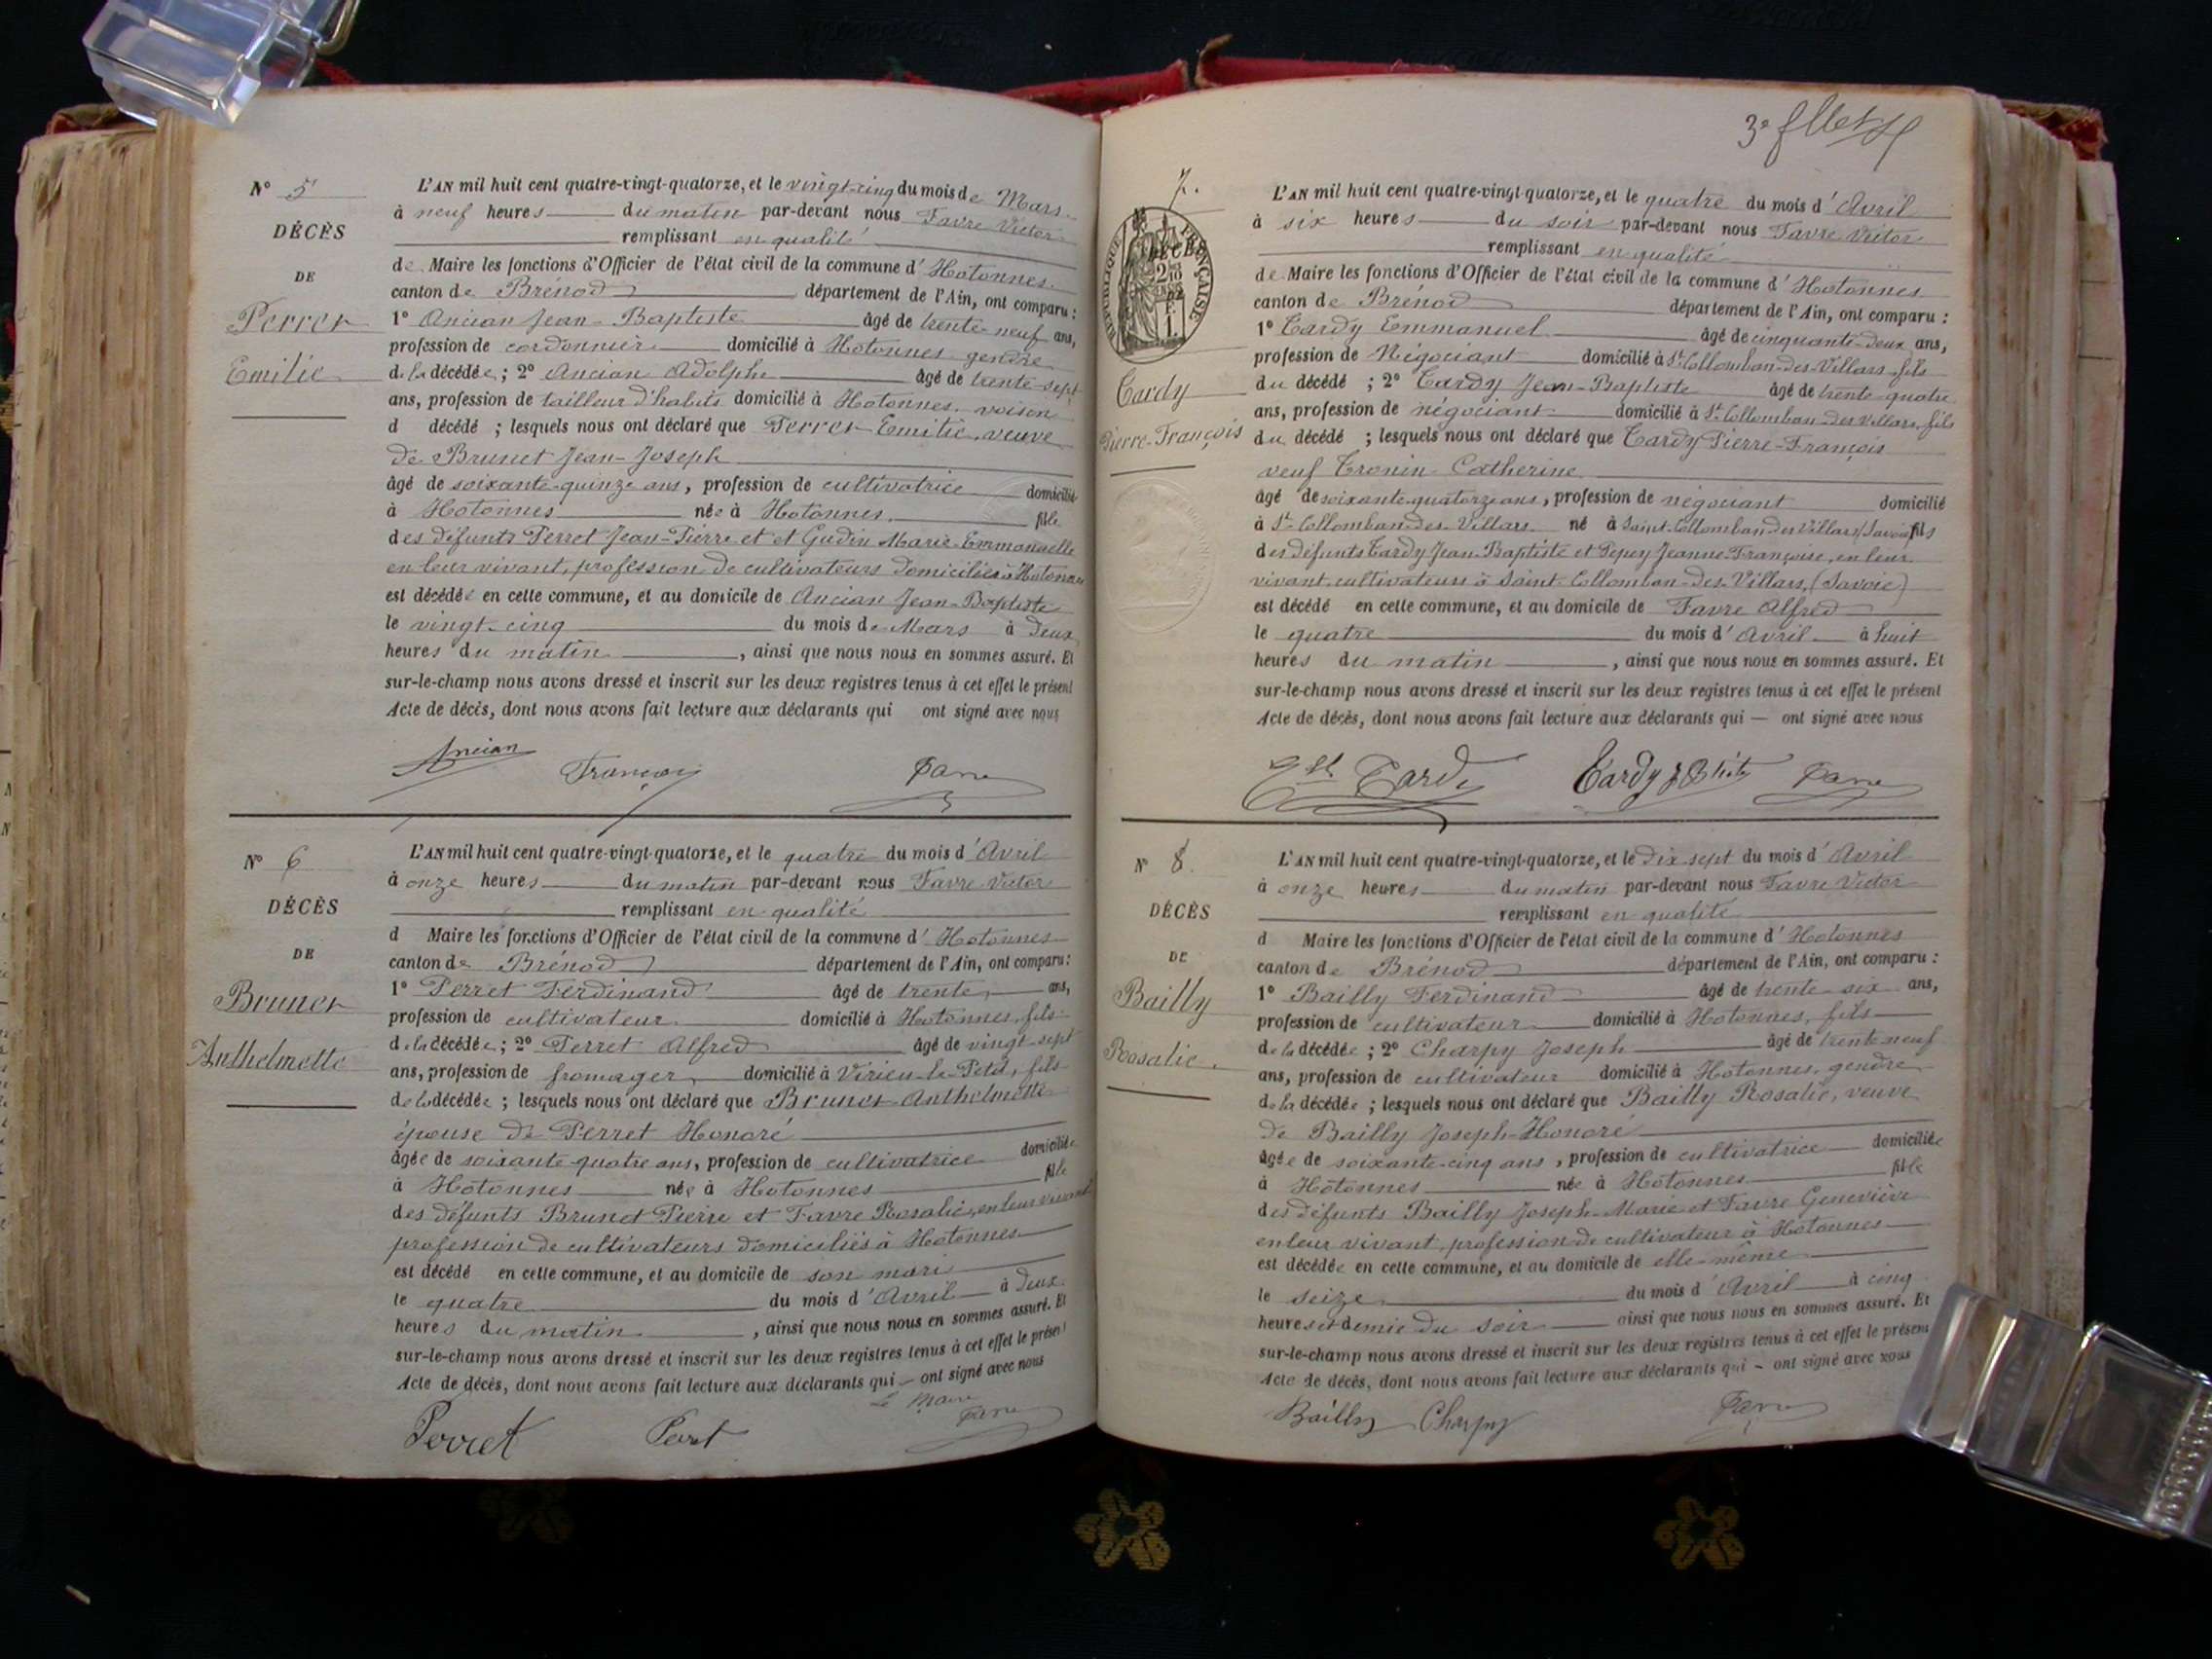 N° 5
DÉCÈS
DE
Perret
Emilie
L'AN mil huit cent quatre-vingt-quatorze, et le vingt-cinq du mois de Mars
à neuf heures du matin par-devant nous Favre Victor
remplissant en qualité
de Maire les fonctions d'Officier de l'état civil de la commune d'Hotonnes
canton de Brénod département de l'Ain, ont comparu :
1° Ancian Jean-Baptiste âgé de trente-neuf ans,
profession de cordonnier domicilié à Hotonnes gendre
de la décédée ; 2° Ancian Adolphe âgé de trente-sept
ans, profession de tailleur d'habits domicilié à Hotonnes, voisin
d décédé ; lesquels nous ont déclaré que Perret Emilie, veuve
de Brunet Jean-Joseph
âgé de soixante-quinze ans, profession de cultivatrice domicilié
à Hotonnes née à Hotonnes fille
des défunts Perret Jean-Pierre et et Gudin Marie-Emmanuelle
en leur vivant, profession de cultivateurs domiciliés à Hotonnes
est décédée en cette commune, et au domicile de Ancian Jean-Baptiste
le vingt-cinq du mois de Mars à deux
heures du matin, ainsi que nous nous en sommes assuré. Et
sur-le-champ nous avons dressé et inscrit sur les deux registres tenus à cet effet le présent
Acte de décès, dont nous avons fait lecture aux déclarants qui ont signé avec nous
Ancian Favre
N° 6
DÉCÈS
DE
Brunet
Anthelmette
L'AN mil huit cent quatre-vingt-quatorze, et le quatre du mois d'Avril
à onze heures du matin par-devant nous Favre Victor
remplissant en qualité
d Maire les fonctions d'Officier de l'état civil de la commune d'Hotonnes
canton de Brénod département de l'Ain, ont comparu :
1° Perret Ferdinand âgé de trente ans,
profession de cultivateur domicilié à Hotonnes, fils
de la décédée ; 2° Perret Alfred âgé de vingt-sept
ans, profession de fromager, domicilié à Virieu-le-Petit, fils
de la décédée ; lesquels nous ont déclaré que Brunet Anthelmette
épouse de Perret Honoré
âgée de soixante-quatre ans, profession de cultivatrice domiciliée
à Hotonnes née à Hotonnes fille
des défunts Brunet Pierre et Favre Rosalie, en leur vivant
profession de cultivateurs domiciliés à Hotonnes
est décédé en cette commune, et au domicile de son mari
le quatre du mois d'Avril à deux
heures du matin, ainsi que nous nous en sommes assuré. Et
sur-le-champ nous avons dressé et inscrit sur les deux registres tenus à cet effet le présent
Acte de décès, dont nous avons fait lecture aux déclarants qui — ont signé avec nous
Le Maire
Perret Perret Favre
3e
7.
RÉPUBLIQUE FRANÇAISE
Tardy
Pierre-François
L'AN mil huit cent quatre-vingt-quatorze, et le quatre du mois d'Avril
à six heures du soir par-devant nous Favre Victor
remplissant en qualité
de Maire les fonctions d'Officier de l'état civil de la commune d'Hotonnes
canton de Brénod département de l'Ain, ont comparu :
1° Tardy Emmanuel âgé de cinquante-deux ans,
profession de Négociant domicilié à St Collomban-des-Villars fils
du décédé ; 2° Tardy Jean-Baptiste âgé de trente-quatre
ans, profession de négociant domicilié à St Collomban-des-Villars, fils
du décédé ; lesquels nous ont déclaré que Tardy Pierre-François
veuf Tronin Catherine
âgé de soixante-quatorze ans, profession de négociant domicilié
à St Collomban-des-Villars né à Saint-Collomban-des-Villars (Savoie) fils
des défunts Tardy Jean-Baptiste et Pepey Jeanne-Françoise, en leur
vivant cultivateurs à Saint-Collomban-des-Villars, (Savoie)
est décédé en cette commune, et au domicile de Favre Alfred
le quatre du mois d'Avril à huit
heures du matin, ainsi que nous nous en sommes assuré. Et
sur-le-champ nous avons dressé et inscrit sur les deux registres tenus à cet effet le présent
Acte de décès, dont nous avons fait lecture aux déclarants qui — ont signé avec nous
Tardy Tardy J Btiste Favre
N° 8.
DÉCÈS
DE
Bailly
Rosalie.
L'AN mil huit cent quatre-vingt-quatorze, et le dix-sept du mois d'Avril
à onze heures du matin par-devant nous Favre Victor
remplissant en qualité
d Maire les fonctions d'Officier de l'état civil de la commune d'Hotonnes
canton de Brénod département de l'Ain, ont comparu :
1° Bailly Ferdinand âgé de trente-six ans,
profession de cultivateur domicilié à Hotonnes, fils
de la décédée ; 2° Charpy Joseph âgé de trente neuf
ans, profession de cultivateur domicilié à Hotonnes, gendre
de la décédée ; lesquels nous ont déclaré que Bailly Rosalie, veuve
de Bailly Joseph-Honoré
âgée de soixante-cinq ans, profession de cultivatrice domiciliée
à Hotonnes née à Hotonnes fille
des défunts Bailly Joseph-Marie et Favre Geneviève
en leur vivant, profession de cultivateur à Hotonnes
est décédée en cette commune, et au domicile de elle-même
le seize du mois d'Avril à cinq
heures et demie du soir ainsi que nous nous en sommes assuré. Et
sur-le-champ nous avons dressé et inscrit sur les deux registres tenus à cet effet le présent
Acte de décès, dont nous avons fait lecture aux déclarants qui — ont signé avec nous
Bailly Charpy Favre